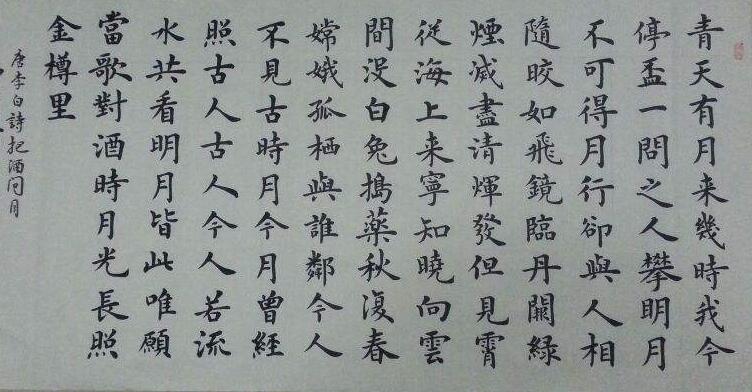 青天有月来幾時我今
停盃一問之人攀明月
不可得月行卻與人相
隨皎如飛鏡臨丹闕緑
煙滅盡清輝發但見霄
從海上来寧知曉向雲
間没白兔搗藥秋復春
嫦娥孤栖與誰鄰今人
不見古時月今月曾經
照古人古人今人若流
水共看明月皆此唯願
當歌對酒時月光長照
金樽里
唐李白詩把酒问月